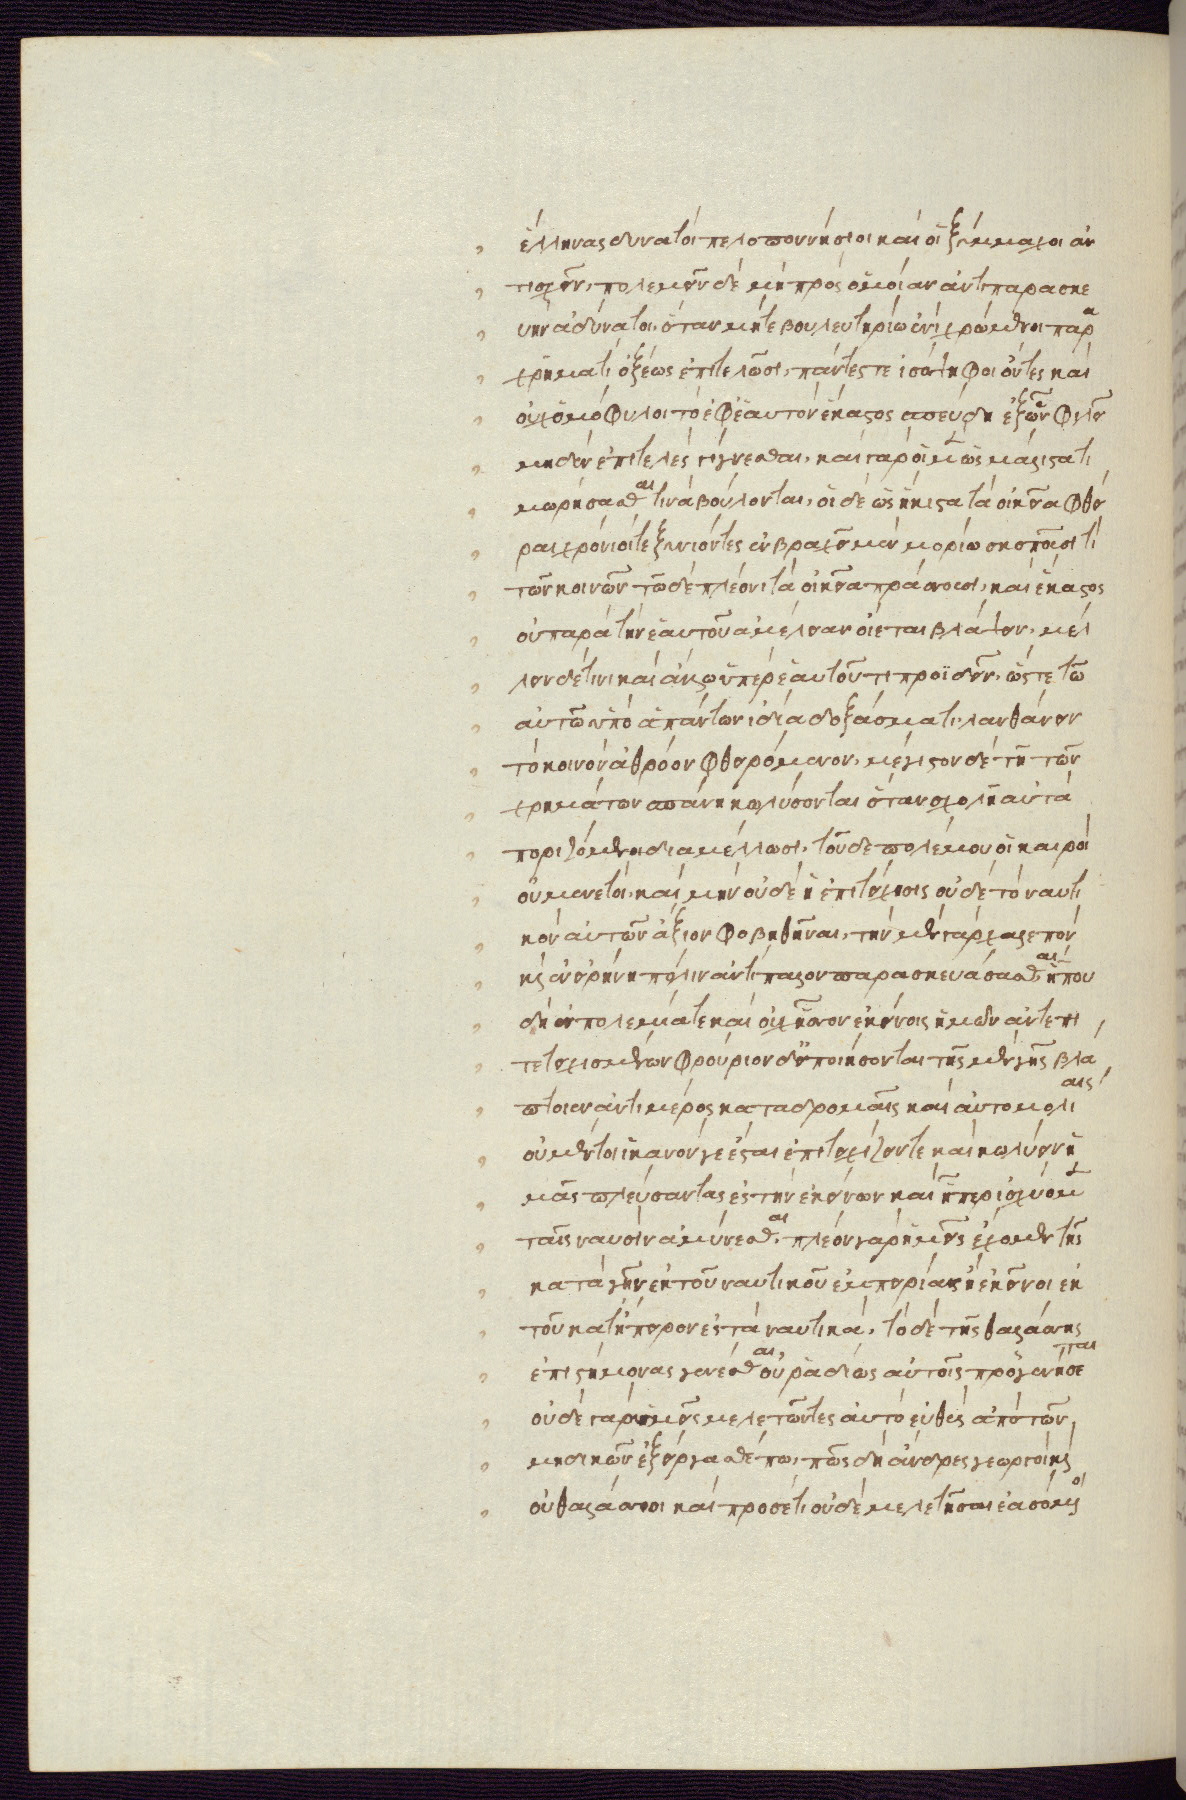 ἕλληνας δυνατοὶ πελοποννήσιοι καὶ οἱ ξύμμαχοι ἀν
τισχεῖν, πολεμεῖν δὲ μὴ πρὸς ὁμοίαν ἀντιπαρασκε
υὴν ἀδύνατοι, ὅταν μήτε βουλευτηρίω ἑνὶ χρώμενοι παρα
χρῆμά τι ὀξέως ἐπιτελῶσι, πάντες τε ἰσόψηφοι ὄντες καὶ
οὐχ ὁμόφυλοι τὸ ἐφ' ἑαυτὸν ἕκαστος σπεύδη ἐξ ὧν φιλεῖ
μηδὲν ἐπιτελὲς γίγνεσθαι, καὶ γὰρ οἱ μὲν ὡς μάλιστα τι
μωρήσασθαι τινὰ βούλονται, οἱ δὲ ὡς ἥκιστα τὰ οἰκεῖα φθεῖ
ραι χρόνιοί τε ξυνιόντες ἐν βραχεῖ μὲν μορίω σκοποῦσί τι
τῶν κοινῶν τῶ δὲ πλέονι τὰ οἰκεῖα πράσσουσι, καὶ ἕκαστος
οὐ παρὰ τὴν ἑαυτοῦ ἀμέλειαν οἴεται βλάψειν, μέλ
λειν δέ τινι καὶ ἄλλω ὑπὲρ ἑαυτοῦ τι προϊδεῖν, ὥστε τῶ
αὐτῶ ὑπὸ ἁπάντων ἰδία δοξάσματι λανθάνειν
τὸ κοινὸν ἀθρόον φθειρόμενον, μέγιστον δὲ τῆ τῶν
χρημάτων σπάνει κωλύσονται ὅταν σχολῆ αὐτὰ
ποριζόμενοι διαμέλλωσι, τοῦ δὲ πολέμου οἱ καιροὶ
οὐ μενετοί, καὶ μὴν οὐδὲ ἡ ἐπιτείχισις οὐδὲ τὸ ναυτι
κὸν αὐτῶν ἄξιον φοβηθῆναι, τὴν μὲν γὰρ χαλεπὸν
κἐν εἰρήνη πόλιν ἀντίπαλον παρασκευάσασθαι ἦ που
δὴ ἐν πολεμία τε καὶ οὐχ ἧσσον ἐκείνοις ἡμῶν ἀντεπι
τετειχισμένων φρούριον δ' εἰ ποιήσονται τῆς μὲν γῆς βλά
πτοιεν ἄν τι μέρος καταδρομαῖς καὶ αὐτομολίαις
οὐ μέντοι ἱκανόν γε ἔσται ἐπιτειχίζειν τε καὶ κωλύειν ἡ
μᾶς πλεύσαντας ἐς τὴν ἐκείνων καὶ ἧπερ ἰσχύομεν
ταῖς ναυσὶν ἀμύνεσθαι. πλέον γὰρ ἡμεῖς ἔχομεν τῆς
κατὰ γῆν ἐκ τοῦ ναυτικοῦ ἐμπειρίας ἢ ἐκεῖνοι ἐκ
τοῦ κατ' ἤπειρον ἐς τὰ ναυτικά, τὸ δὲ τῆς θαλάσσης
ἐπιστήμονας γενέσθαι οὐ ῥαδίως αὐτοῖς προσγενήσεται
οὐδὲ γὰρ ἡμεῖς μελετῶντες αὐτὸ εὐθὺς ἀπὸ τῶν
μηδικῶν ἐξείργασθέ πω, πῶς δὴ ἄνδρες γεωργοὶ καὶ
οὐ θαλάσσιοι καὶ προσέτι οὐδὲ μελετῆσαι ἐασόμενοι